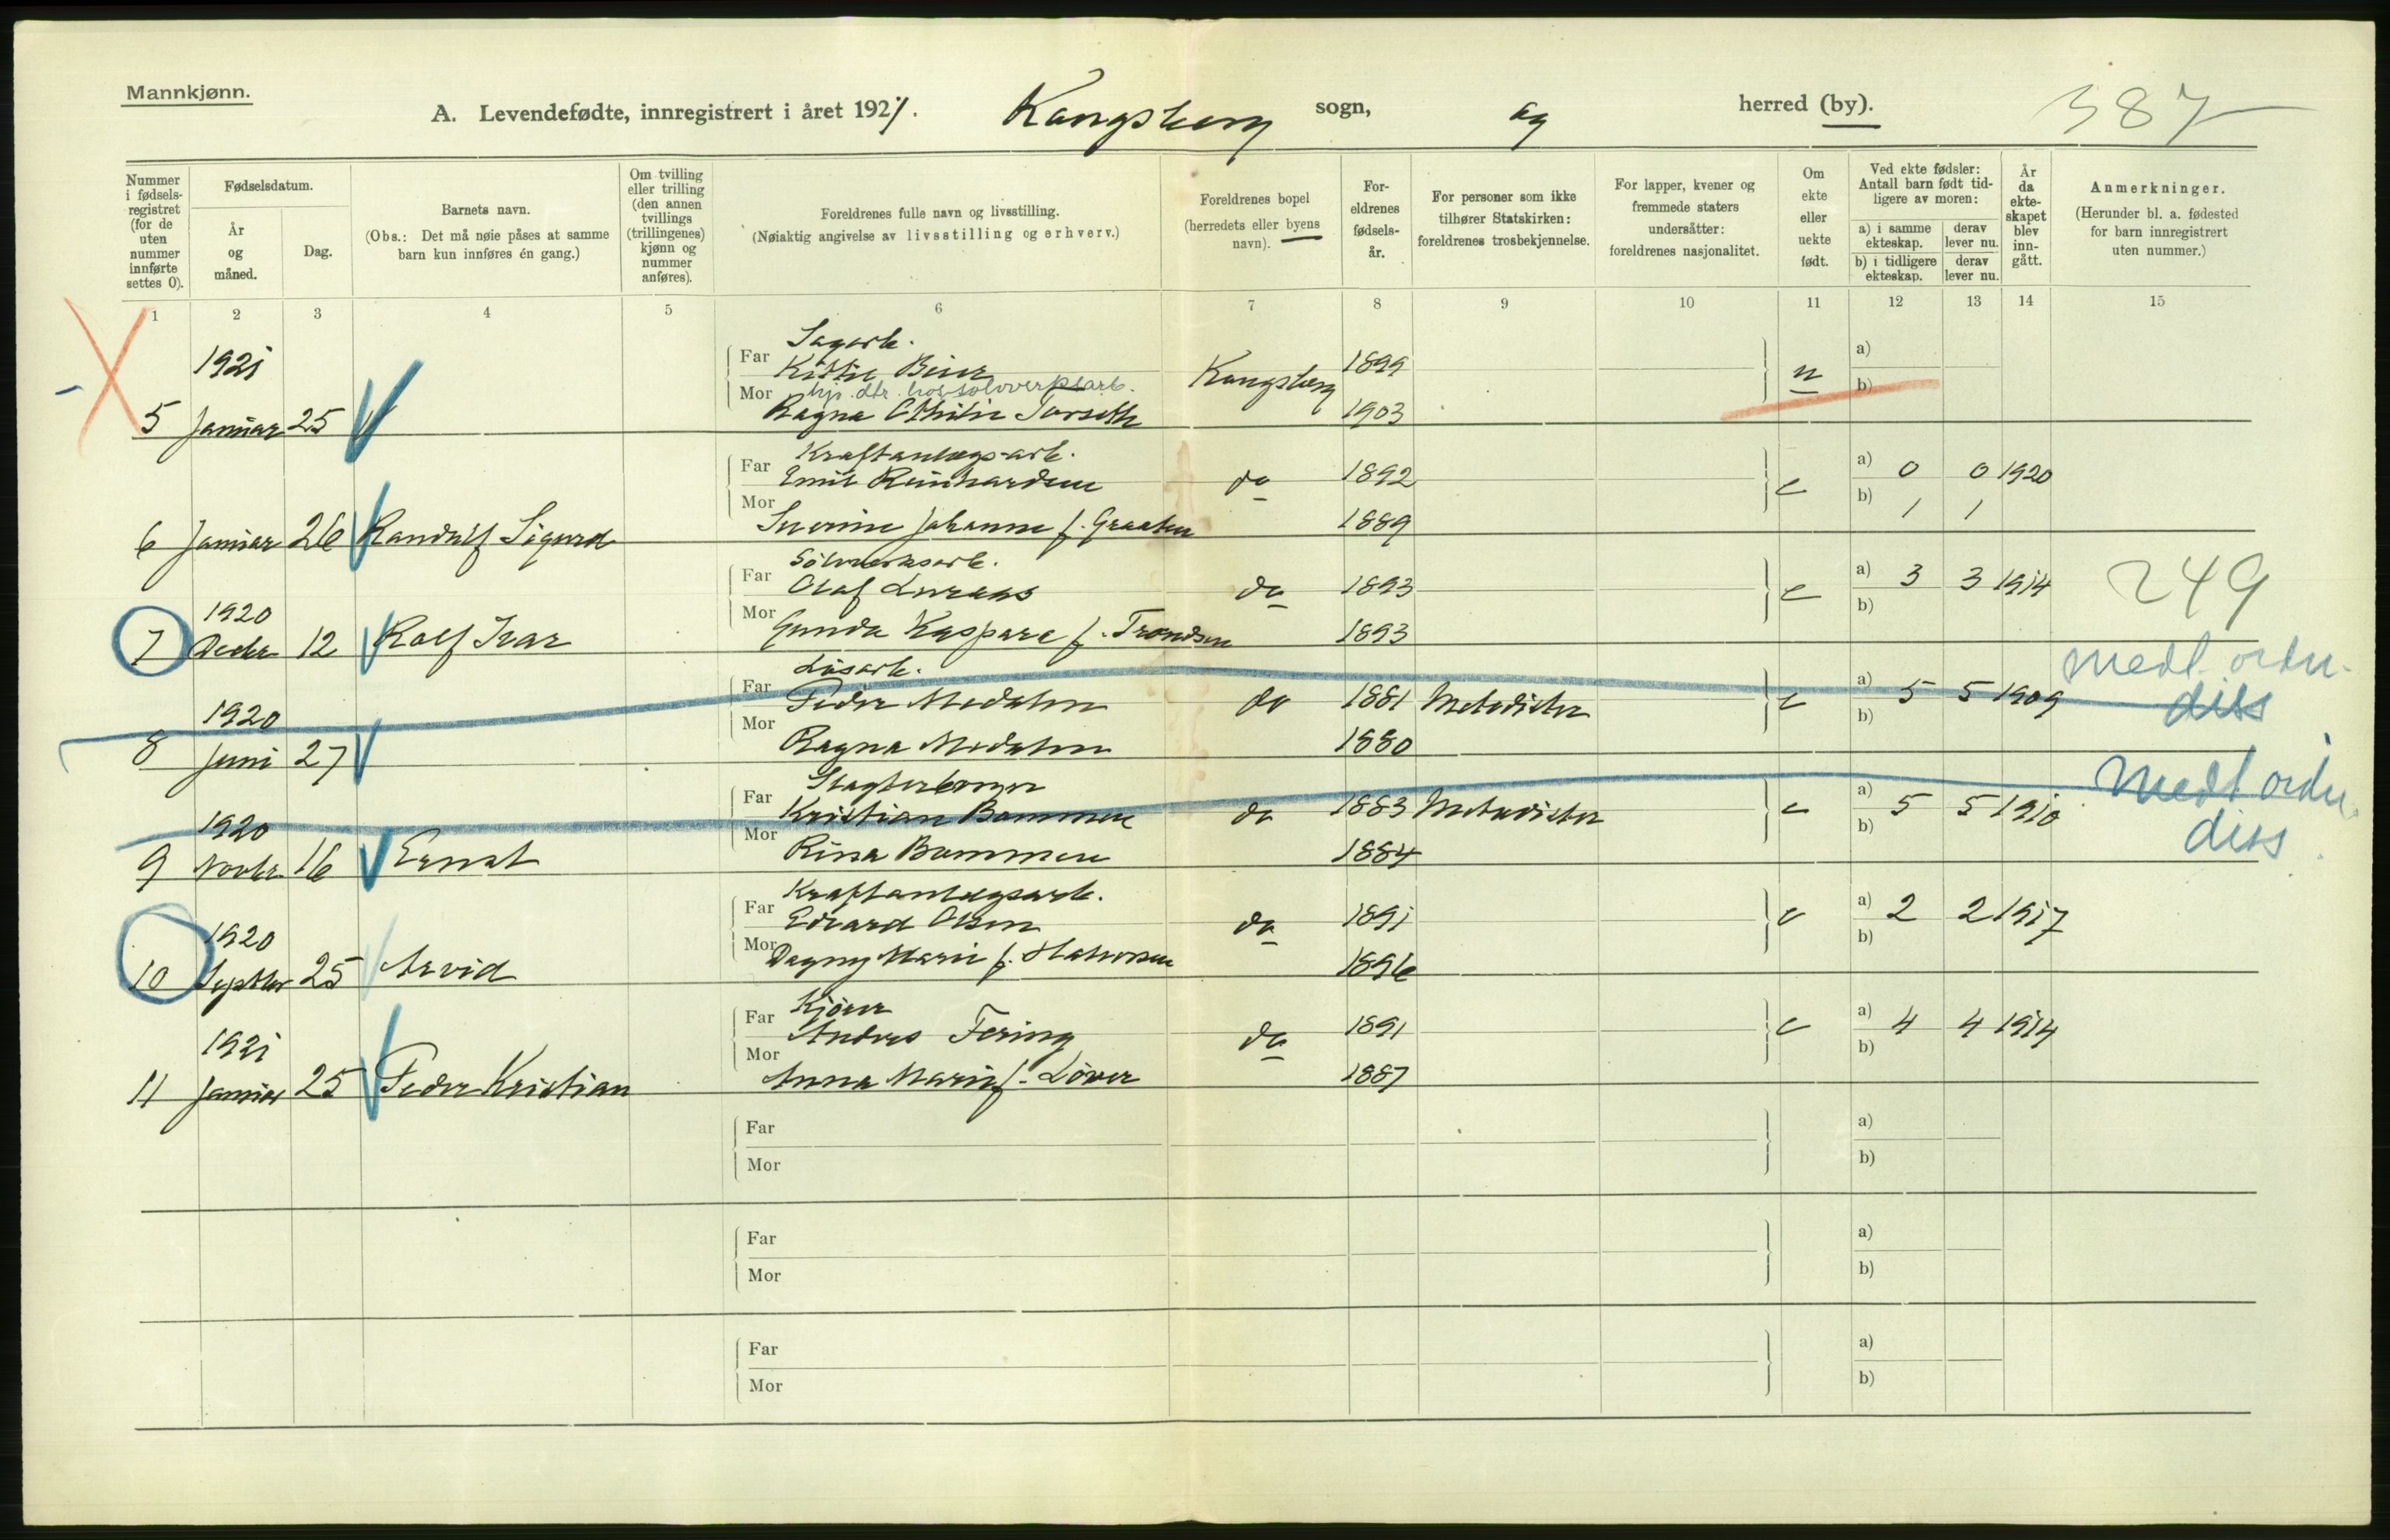 Mannkjønn.
A. Levendefødte, innregistrert i året 1921. Kongsberg sogn, og herred (by). 387
Nummer i fødselsregistret (for de uten nummer innførte settes 0).
Fødselsdatum.
År og måned.
Dag.
Barnets navn.
(Obs.: Det må nøie påses at samme barn kun innføres én gang.)
Om tvilling eller trilling (den annen tvillings (trillingenes) kjønn og nummer anføres).
Foreldrenes fulle navn og livsstilling.
(Nøiaktig angivelse av livsstilling og erhverv.)
Foreldrenes bopel (herredets eller byens navn).
Foreldrenes fødselsår.
For personer som ikke tilhører Statskirken: foreldrenes trosbekjennelse.
For lapper, kvener og fremmede staters undersåtter: foreldrenes nasjonalitet.
Om ekte eller uekte født.
Ved ekte fødsler: Antall barn født tidligere av moren:
a) i samme ekteskap. derav lever nu.
b) i tidligere ekteskap. derav lever nu.
År da ekteskapet blev inngått.
Anmerkninger.
(Herunder bl. a. fødested for barn innregistrert uten nummer.)
1 2 3 4 5 6 7 8 9 10 11 12 13 14 15
Sagarb.
1921 Far 1899 a)
Kongsberg u
Mor hj. dtr. hos sølvverksarb. b)
5 Januar 25 Ragna Othilie 1903
Kraftanlægsarb.
Far Emil Reinhardsen do 1892 e a) 0 0 1920
Mor b) 1 1
6 Januar 26 Randulf Sigurd Severine Johanne f. Graaten 1889
Sölvverksarb.
Far Olaf Luraas do 1893 e a) 3 3 1914 249
1920 Mor b)
7 Decbr 12 Rolf Ivar Gunda Kaspara f. Trondsen 1893
Far Peder Medalen do 1881 Metodister e a) 5 5 1909 Medt ordn. diss
1920 Mor b)
8 Juni 27 Ragna Medalen 1880
Far Kristian Bammen do 1883 Metodister e a) 5 5 1910 Medt ordn. diss
1920 Mor b)
9 Novbr 16 Ernst Rina Bammen 1884
Kraftanlægsarb.
Far Edvard Olsen do 1891 e a) 2 2 1917
1920 Mor b)
10 Septbr 25 Arvid Dagny Marie f. Halvorsen 1896
Kjörer
Far Anders Fering do 1891 e a) 4 4 1914
1921 Mor b)
11 Januar 25 Peder Kristian Anna Marie f. Löver 1887
Far a)
Mor b)
Far a)
Mor b)
Far a)
Mor b)